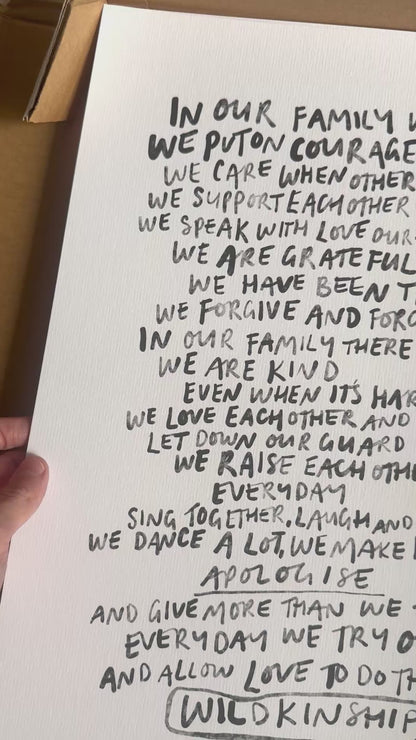 IN OUR FAMILY
WE PUT ON COURAGE
WE CARE WHEN OTHER
WE SUPPORT EACH OTHER
WE SPEAK WITH LOVE OUR
WE ARE GRATEFUL
WE HAVE BEEN
WE FORGIVE AND
IN OUR FAMILY THERE
WE ARE KIND
EVEN WHEN IT'S
WE LOVE EACH OTHER AND
LET DOWN OUR GUARD
WE RAISE EACH
EVERYDAY
SING TOGETHER, LAUGH AND
WE DANCE A LOT, WE MAKE
APOLOGISE
AND GIVE MORE THAN WE
EVERYDAY WE TRY
AND ALLOW LOVE TO DO
WILDKINSHIP